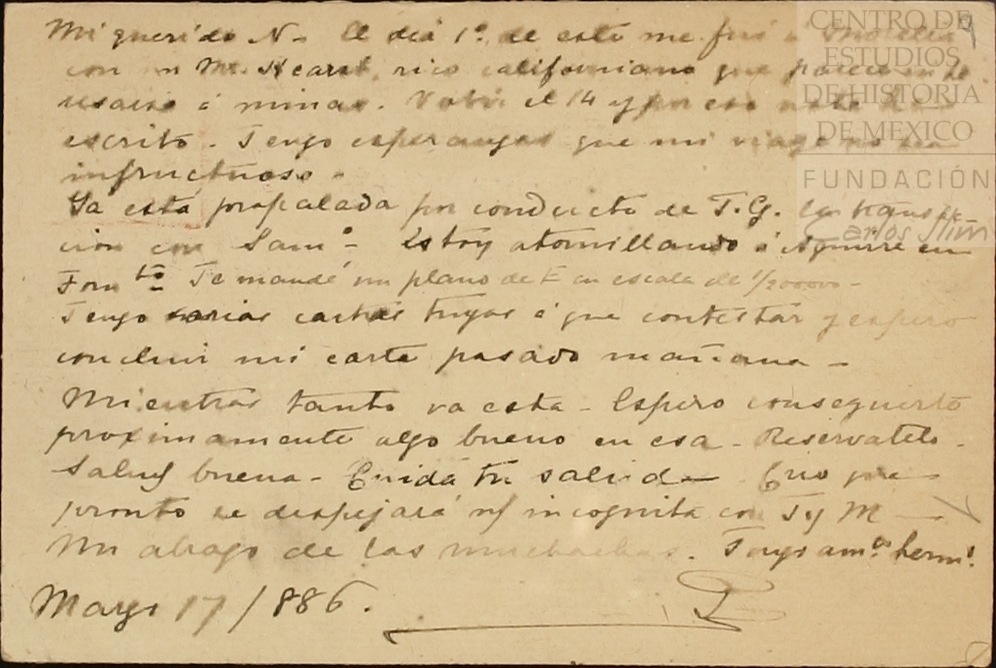 Mi querido N. El día 1º. de este me fuí a Morelia
con un Mr. Hearst, rico californiano que parece
á minas. Volví el 14 y por eso no te he
escrito. Tengo esperanzas que mi viage no sea
infructuoso.
Ya está propalada por conducto de T.G. la transac-
ción con Samº. Estoy atornillando á Aguirre en
Fomto. Te mandé un plano de E en escala de 1/20000.
Tengo varias cartas tuyas á que contestar y espero
concluir mi carta pasado mañana.
Mientras tanto va esta. Espero conseguirte
proximamente algo bueno en esa. Reservatelo.
Salud buena. Cuida tu salud. Creo que
pronto se despejará incognita con T y M
Un abrazo de las muchachas. Tuyo amº. hermº.
Mayo 17/886.
CENTRO DE
ESTUDIOS
DE HISTORIA
DE MEXICO
FUNDACIÓN
Carlos Slim